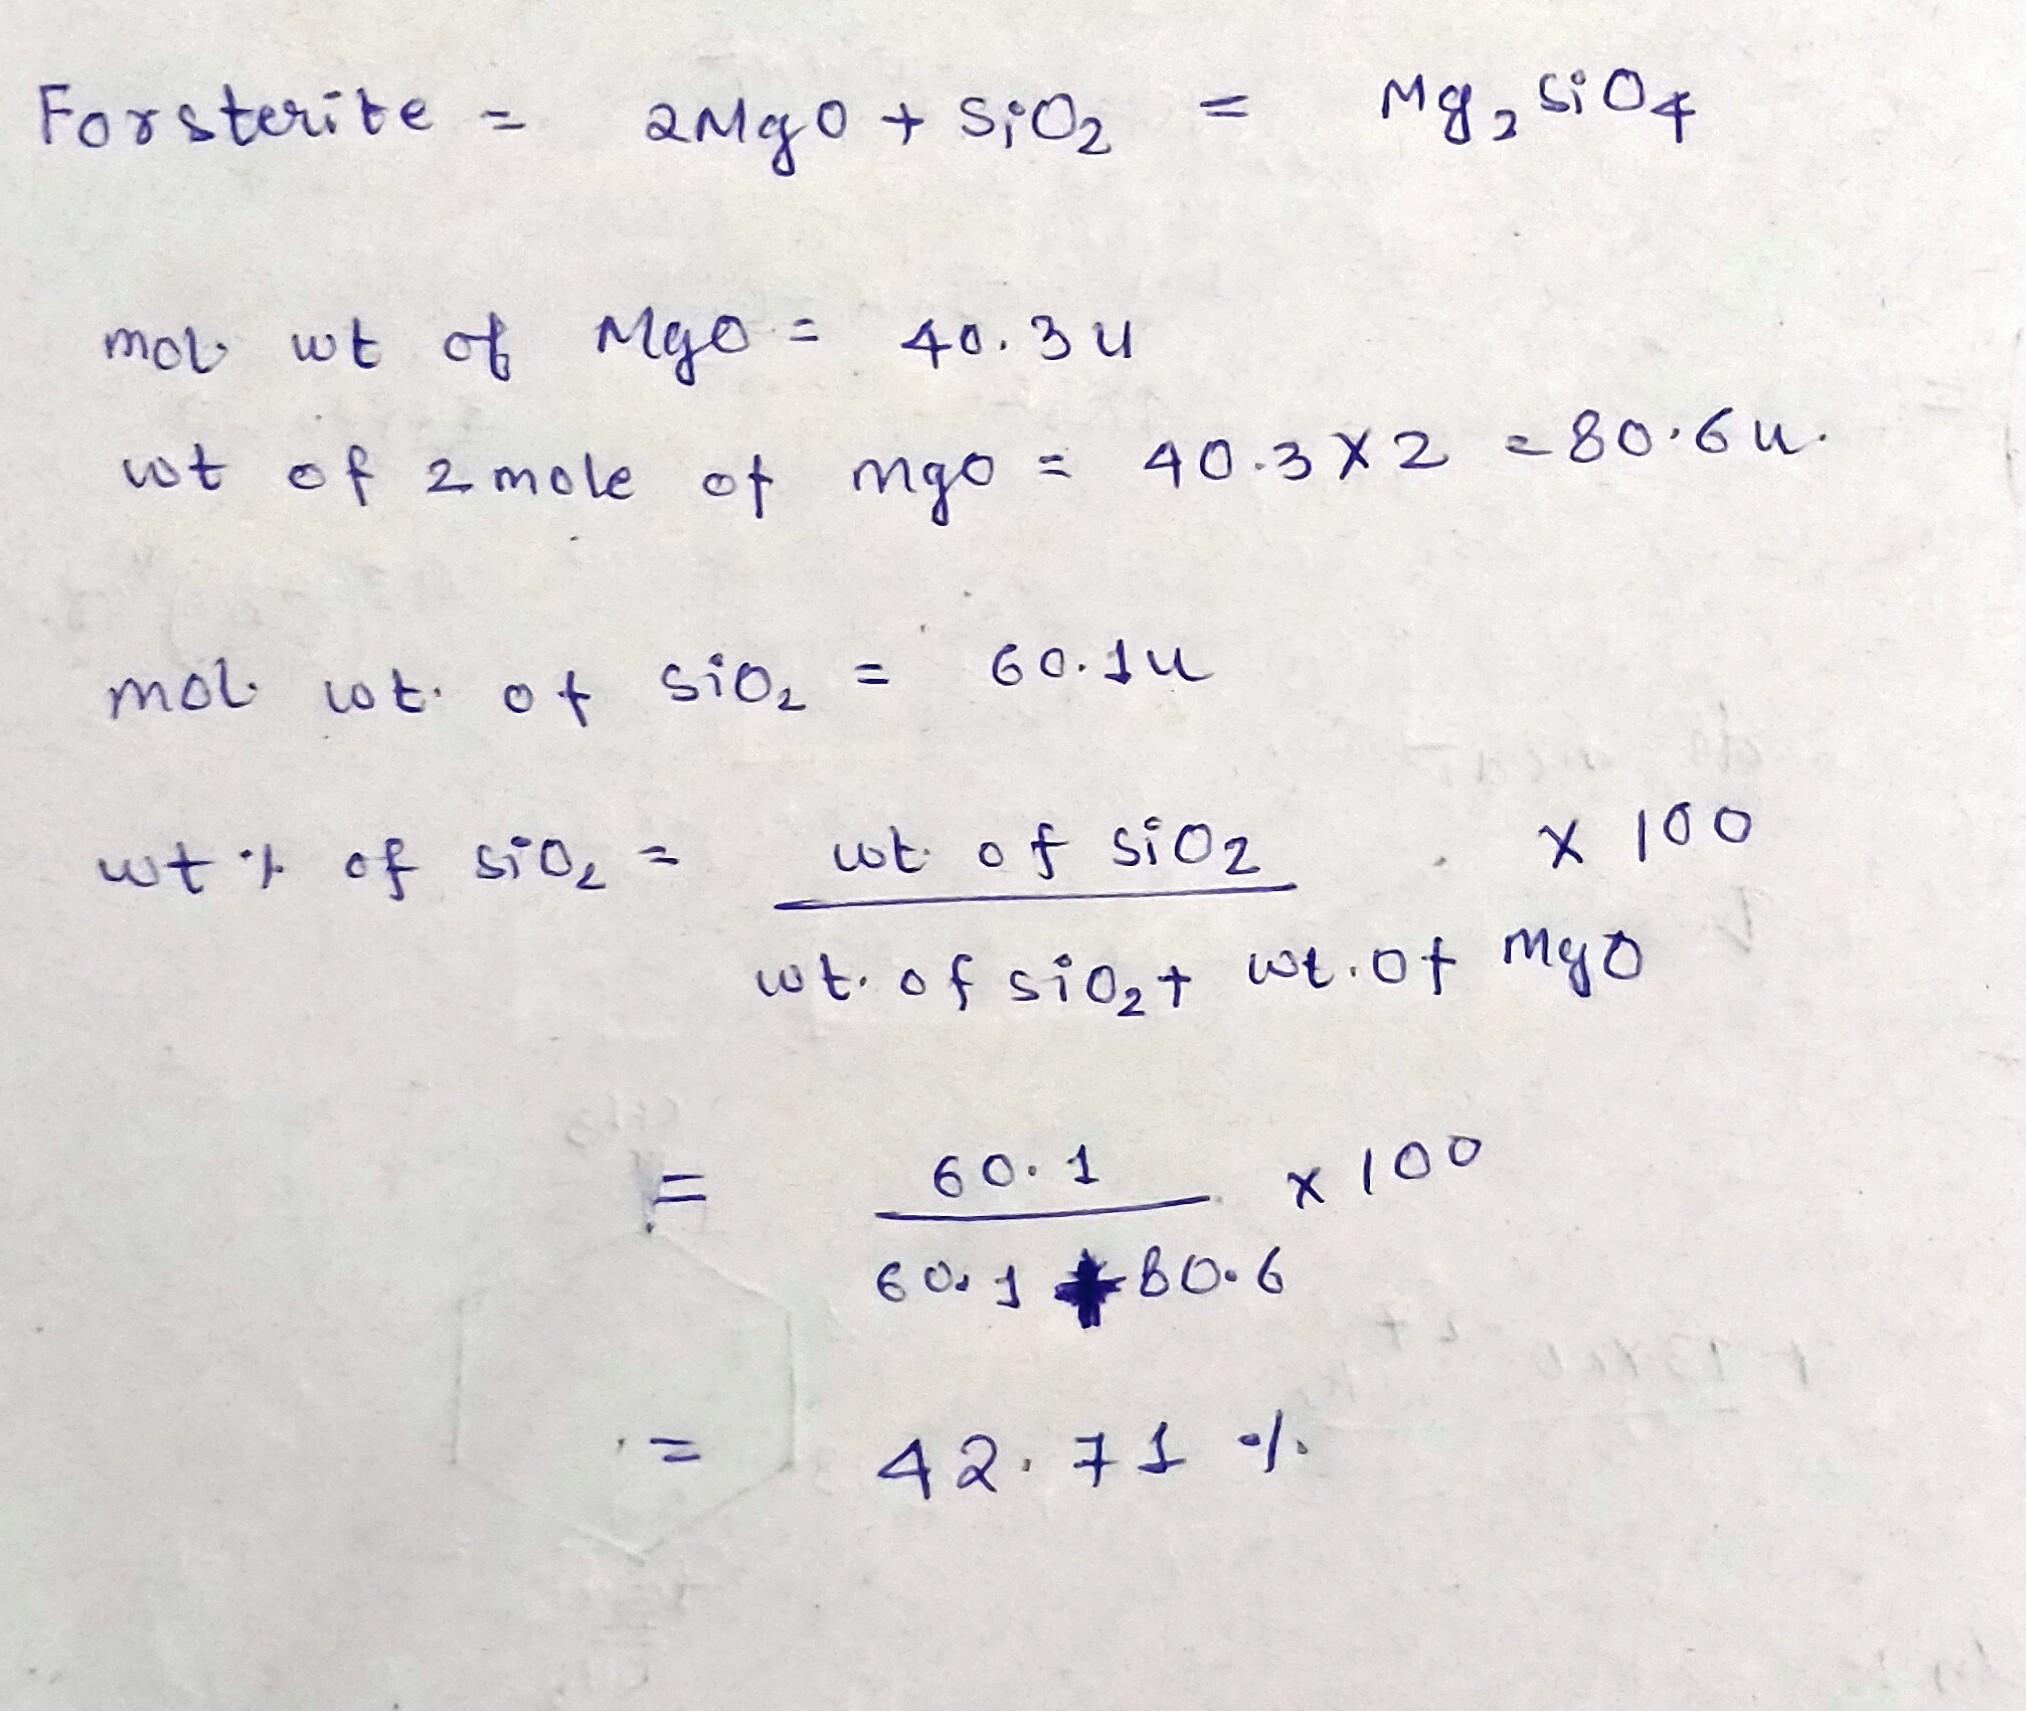 Forsterite = 2MgO + SiO₂ = Mg₂SiO₄
mol. wt of MgO = 40.3 u
wt of 2 mole of mgo = 40.3 X 2 = 80.6 u.
mol. wt. of siO₂ = 60.1u
wt % of siO₂ = wt. of siO₂ x 100
wt. of siO₂ + wt. of MgO
= 60.1 x 100
60.1 + 80.6
= 42.71 %